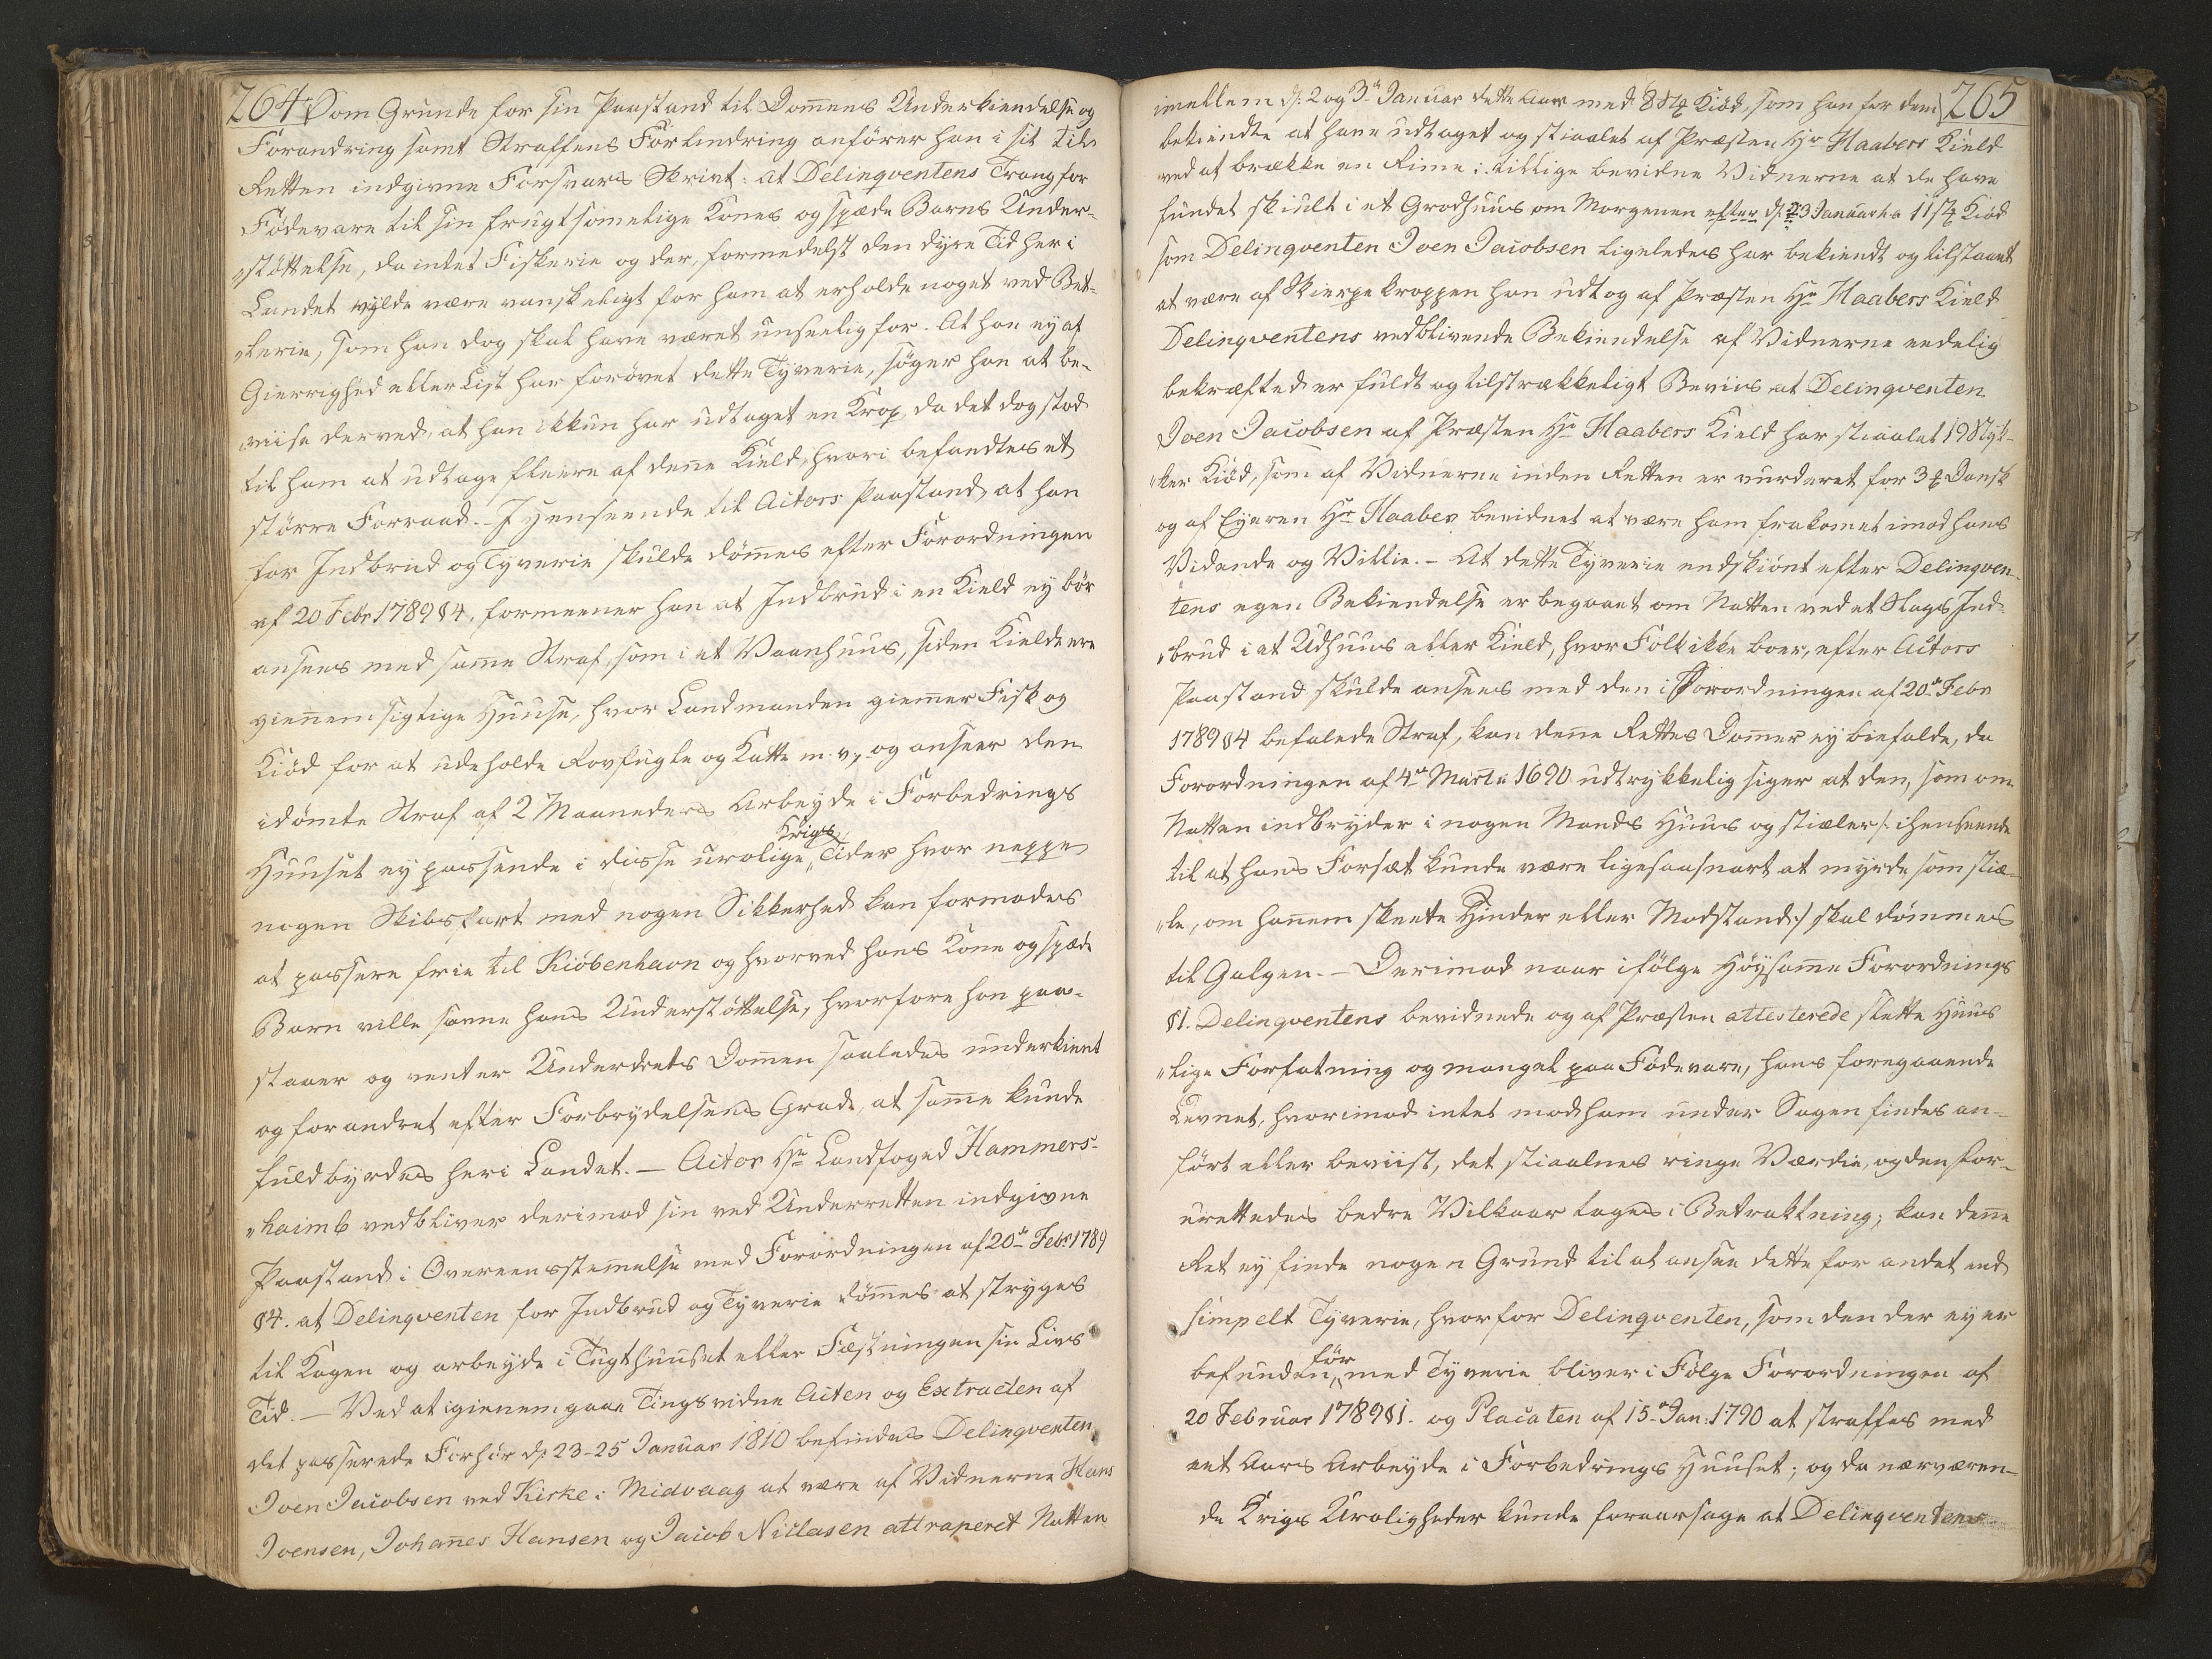 264
Som Grunde for sin Paastand til Dom̄ens Underkiendelse og
Forandring samt Straffens Formindring anfører han i sit til
Retten indgivne Forsvars Skrivt: at Delinqventens Trang for
Födevare til sin frugtsommelige Kones og spæde Barns Under-
„støttelse, da intet Fiskerie og der, formedelst den dyre Tid her i
Landet vylde være vanskeligt for ham at erholde noget ved Bet-
„lerie, som han dog skal have været unseelig for. At han ey af
Gierrighed eller List har forøvet dette Tyverie, søger han at be-
„viise derved, at han ikkun har udtaget en Krop, da det dog stod
til ham at udtage fleere af den̄e Kield, hvori befandtes et
større Forraad. - I Henseende til Actors Paastand, at han
for Indbrud og Tyverie skulde døm̄es efter Forordningen
af 20 Febr 1789 §4, formeener han at Indbrud i en Kield ey bør
ansees med sam̄e Straf, som i et Vaanhuus, siden Kielde ere
gien̄emsigtige Huuse, hvor Landmanden giem̄er Fisk og
Kiød for at udeholde Rovfugle og Katte m. v., og anseer den
idømte Straf af 2 Maaneders Arbeyde i Forbedrings
Huuset ey passende i disse urolige „Krigs Tider hvor neppe
nogen Skibsfart med nogen Sikkerhed kan formodes
at passere frie til Kiöbenhavn og hvorved hans Kone og spæde
Barn ville savne hans Understøttelse, hvorfore han paa-
staaer og venter Underrets Dom̄en saaledes underkient
og forandret efter Forbrydelsens Grad, at sam̄e kunde
fuldbyrdes her i Landet. — Actor Hr Landfoged Hammers-
„haimb vedbliver derimod sin ved Underretten indgivne
Paastand i Overeensstem̄else med Forordningen af 20de Febr 1789
§4. at Delinqventen for Indbrud og Tyverie döm̄es at stryges
til Kagen og arbeyde i Tugthuuset eller Fæstningen sin Livs
Tid. — Ved at igien̄emgaae Tingsvidne Acten og Extracten af
det passerede Forhör d: 23-25 Januar 1810 befindes Delinqventen
Joen Jacobsen ved Kirke i Midvaag at være af Vidnerne Hans
Joensen, Johan̄es Hansen og Jacob Niclasen attraperet Natten
265
imellem d: 2 og 3de Januar dette Aar med 8 ℔ Kiöd, som han for dem
bekiendte at have udtaget og stiaalet af Præsten Hr Haabers Kield
ved at brække en Rime: tillige bevidne Vidnerne at de have
fundet skiult i et Grødhuus om Morgenen efter d: 3 Januar ca 11 ℔ Kiød
som Delinqventen Joen Jacobsen ligeledes har bekiendt og tilstaaet
at være af Skierpekroppen han udtog af Præsten Hr Haabers Kield
Delinqventens vedblivende Bekiendelse af Vidnerne eedelig
bekræfted er fuldt og tilstrækkeligt Beviis at Delinqventen
Joen Jacobsen af Præsten Hr Haabers Kield har stiaalet 19 ℔
„ker Kiød, som af Vidnerne inden Retten er vurderet for 3 ℔ Dansk
og af Eyeren Hr Haaber beeidnet at være ham frakomet imod hans
Vidende og Villie. - At dette Tyverie endskiønt efter Delinqven-
tens egen Bekiendelse er begaaet om Natten ved et Slags Ind-
„brud i et Udhuus eller Kield, hvor Folk ikke boer, efter Actors
Paastand skulde ansees med den i Forordningen af 20de Febr
1789 §4 befalede Straf, kan den̄e Rettes Dom̄er ey biefalde, da
Forordningen af 4de Martii 1690 udtrykkelig siger at den, som om
Natten indbryder i nogen Mands Huus og stiæler /: i henseende
til at hans Forsæt kunde være ligesaasnart at myrde som stiæ-
„le, om han̄em skeete Hinder eller Modstand :/ skal dömmes
til Galgen. — Derimod naar ifölge Höysam̄e Forordnings
§1. Delinqventens bevidnede og af Præsten attesterede slette Huus
„lige Forfatning og mangel paa Födevare, hans foregaaende
Levnet, hvorimod intet mod ham under Sagen findes an-
fört eller beviist, det stiaalnes ringe Værdie, og den for-
urettedes bedre Vilkaar tages i Betraktning; kan den̄e
Ret ey finde nogen Grund til at ansee dette for andet end
simpelt Tyverie, hvorfor Delinqventen, som den der ey er
befunden „för med Tyverie bliver i Fölge Forordningen af
20 Februar 1789 §1. og Placaten af 15de Jan: 1790 at straffes med
eet Aars Arbeyde i Forbedrings Huuset; og da nærværen-
de Krigs Uroligheder kunde foraarsage at Delinqventens